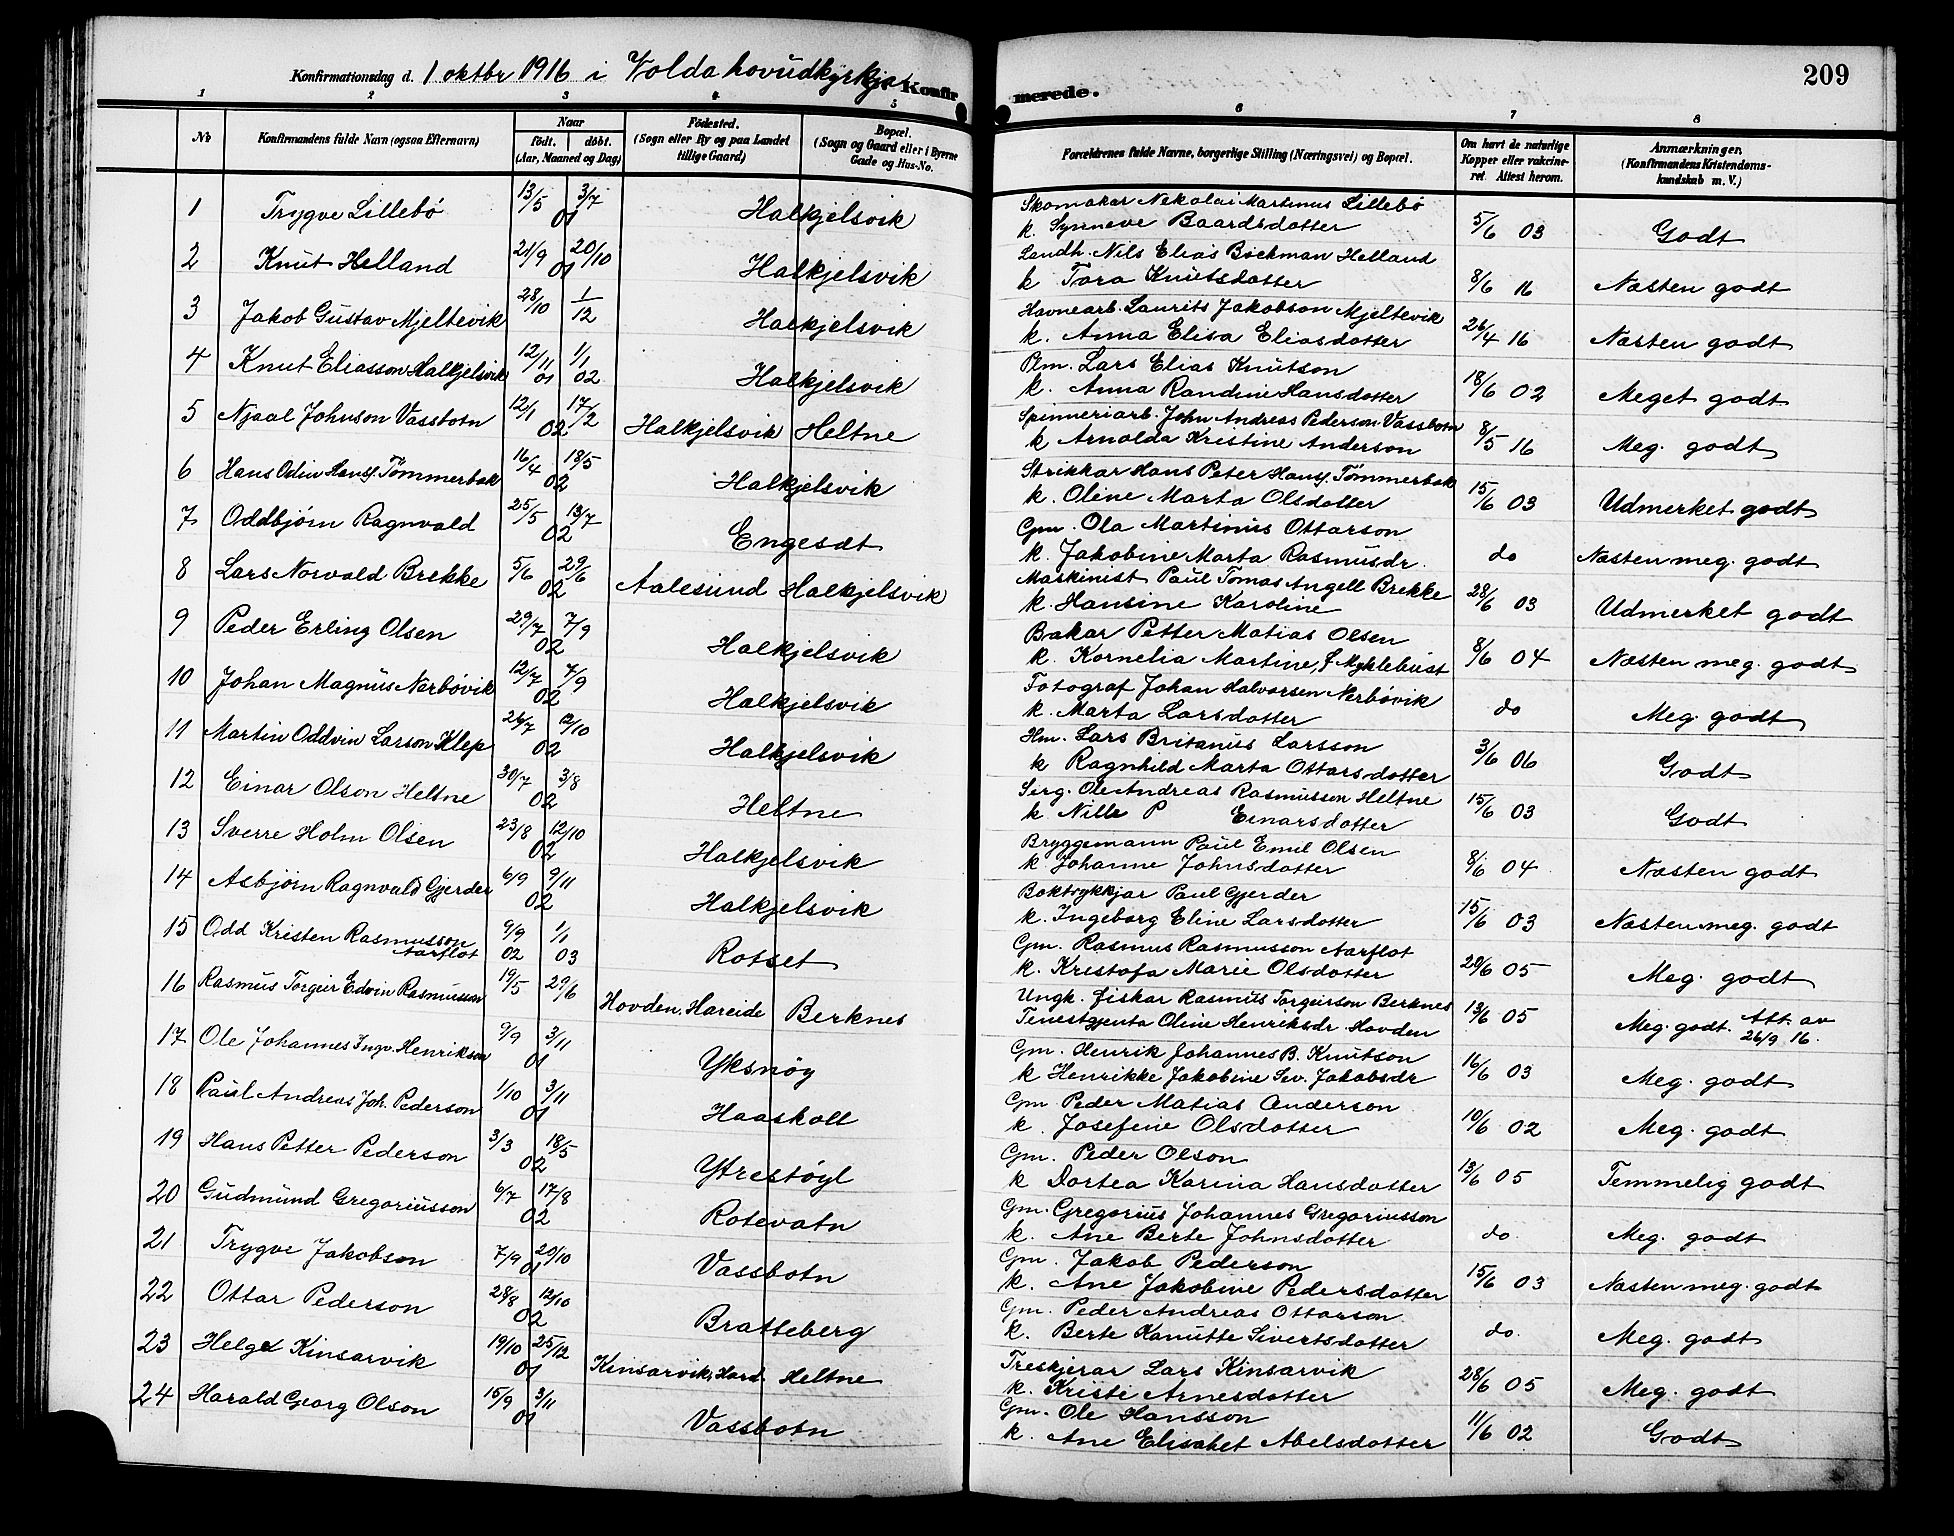 209
Konfirmationsdag d. 1 oktbr 1916 i Volda hovudkyrkja. Konfirmerede.
1 2 3 4 5 6 7 8
No
Konfirmandens fulde Navn (ogsaa Efternavn)
Naar
født. døbt.
(Aar, Maaned og Dag)
Fødested.
(Sogn eller By og paa Landet tillige Gaard)
Bopæl.
(Sogn og Gaard eller i Byerne Gade og Hus-No.
Forældrenes fulde Navne, borgerlige Stilling (Næringsvei) og Bopæl.
Om havt de naturlige Kopper eller vakcineret. Attest herom.
Anmærkninger.
(Konfirmandens Kristendomskundskab m. V.)
1 Trygve Lillebö 13/5 3/7 01 Halkjelsvik Skomakar Nekolai Martinus Lillebö
k. Synneve Baardsdotter 5/6 03 Godt
2 Knut Helland 21/9 20/10 01 Halkjelsvik Landh. Nils Elias Böckman Helland
k Tora Knutsdotter 8/6 16 Næsten godt
3 Jakob Gustav Mjeltevik 28/10 1/12 Halkjelsvik Havnearb. Laurits Jakobson Mjeltevik
k. Anna Elisa Eliasdotter 26/4 16 Næsten godt
4 Knut Eliasson Halkjelsvik 12/11 01 1/1 02 Halkjelsvik Ölm. Lars Elias Knutson
k. Anna Randine Hansdotter 18/6 02 Meget godt
5 Njaal Johnson Vassbotn 12/1 17/2 02 Halkjelsvik Heltne Spinneriarb. John Andreas Pederson Vassbotn
k Arnolda Kristine Anderson 8/5 16 Meg. godt
6 Hans Odin Hanss. Tömmerbak 16/4 18/5 02 Halkjelsvik Strikkar Hans Peter Hanss. Tömmerbak
k. Oline Marta Olsdotter 15/6 03 Udmerket godt
7 Oddbjörn Ragnvald 25/5 13/7 02 Engeset Gm. Ola Martinus Ottarson
k. Jakobine Marta Rasmusdr. do Næsten meg. godt
8 Lars Norvald Brekke 5/6 29/6 02 Aalesund Halkjelsvik Maskinist Paul Tomas Angell Brekke
k. Hansine Karoline 28/6 03 Udmerket godt
9 Peder Erling Olsen 29/7 7/9 02 Halkjelsvik Bakar Petter Matias Olsen
k. Kornelia Martine, f Myklebust 8/6 04 Næsten meg. godt
10 Johan Magnus Nerbövik 12/7 7/9 02 Halkjelsvik Fotograf Johan Halvorsen Nerbövik
k. Marta Larsdotter do Meg. godt
11 Martin Oddvin Larson Klep 26/7 12/10 02 Halkjelsvik Hm. Lars Britanus Larsson
k Ragnhild Marta Ottarsdotter 3/6 06 Godt
12 Einar Olson Heltne 30/7 3/8 02 Heltne Serg. Ole Andreas Rasmusson Heltne
k Nille P Einarsdotter 15/6 03 Godt
13 Sverre Holm Olsen 23/8 12/10 02 Halkjelsvik Bryggemann Paul Emil Olsen
k Johanne Johnsdotter 8/6 04 Næsten godt
14 Asbjörn Ragnvald Gjerder 6/9 9/11 02 Halkjelsvik Boktrykkjar Paul Gjerder
k. Ingeborg Eline Larsdotter 15/6 03 Næsten meg. godt
15 Odd Kristen Rasmusson Aarflot 9/9 02 1/1 03 Rotset Gm. Rasmus Rasmusson Aarflot
k. Kristofa Marie Olsdotter 20/6 05 Meg. godt
16 Rasmus Torgeir Edvin Rasmusson 19/5 29/6 Hovden, Hareide Berknes Ungk. fiskar Rasmus Torgeirson Berknes
Tenestgjenta Oline Henriksdr. Hovden 13/6 05 Meg. godt. Att. av 26/9 16.
17 Ole Johannes Ingv. Henrikson 9/9 3/11 01 Yksnöy Gm. Henrik Johannes B. Knutson
k Henrikke Jakobine Sev. Jakobsdr 16/6 03 Meg. godt
18 Paul Andreas Joh. Pederson 1/10 3/11 01 Haaskoll Gm Peder Matias Anderson
k. Josefine Olsdotter 10/6 02 Meg. godt
19 Hans Petter Pederson 3/3 18/5 02 Ytrestöyl Gm. Peder Olson
k Dortea Karina Hansdotter 13/6 05 Temmelig godt
20 Gudmund Gregoriusson 6/7 17/8 02 Rotevatn Gm. Gregorius Johannes Gregoriusson
k. Ane Berte Johnsdotter do. Meg. godt
21 Trygve Jakobson 7/9 20/10 01 Vassbotn Gm. Jakob Pederson
k. Ane Jakobine Pedersdotter 15/6 03 Næsten meg. godt
22 Ottar Pederson 28/8 12/10 02 Bratteberg Gm. Peder Andreas Ottarson
k. Berte Kanutte Sivertsdotter do. Meg. godt
23 Helge Kinsarvik 19/10 25/12 01 Kinsarvik, Hard. Heltne Treskjerar Lars Kinsarvik
k. Kristi Arnesdotter 28/6 05 Meg. godt
24 Harald Georg Olson 15/9 3/11 01 Vassbotn Gm. Ole Hansson
k. Ane Elisabet Abelsdotter 11/6 02 Godt